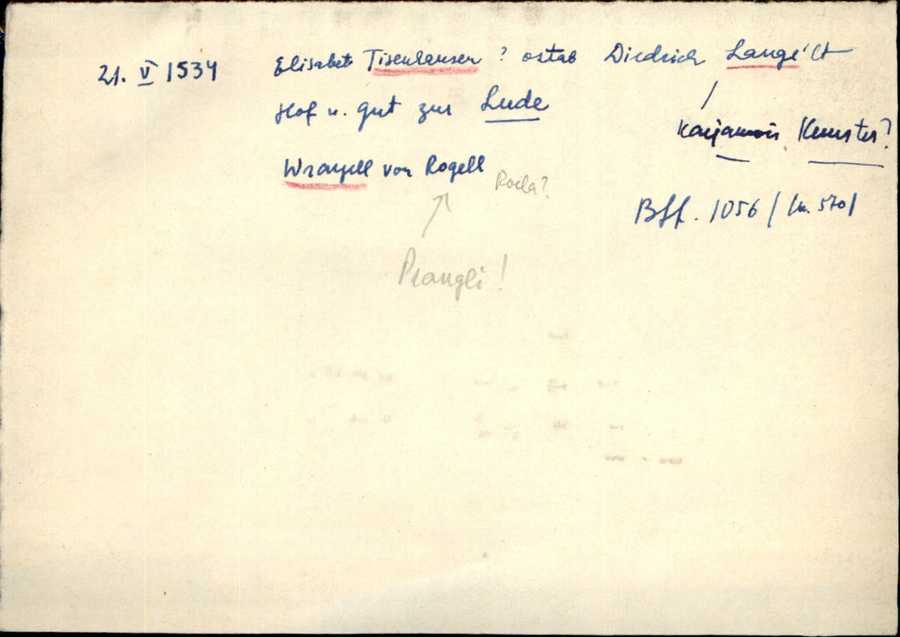 21. V 1534 Elisabet Tisenhausen ? ostab Diedrich Lange'lt
Hof u. gut zur Lude
Karjamõis, Kunster?
Wrangell von Rogell Roela?
Bff. 1056 / lk. 570/
Prangli!